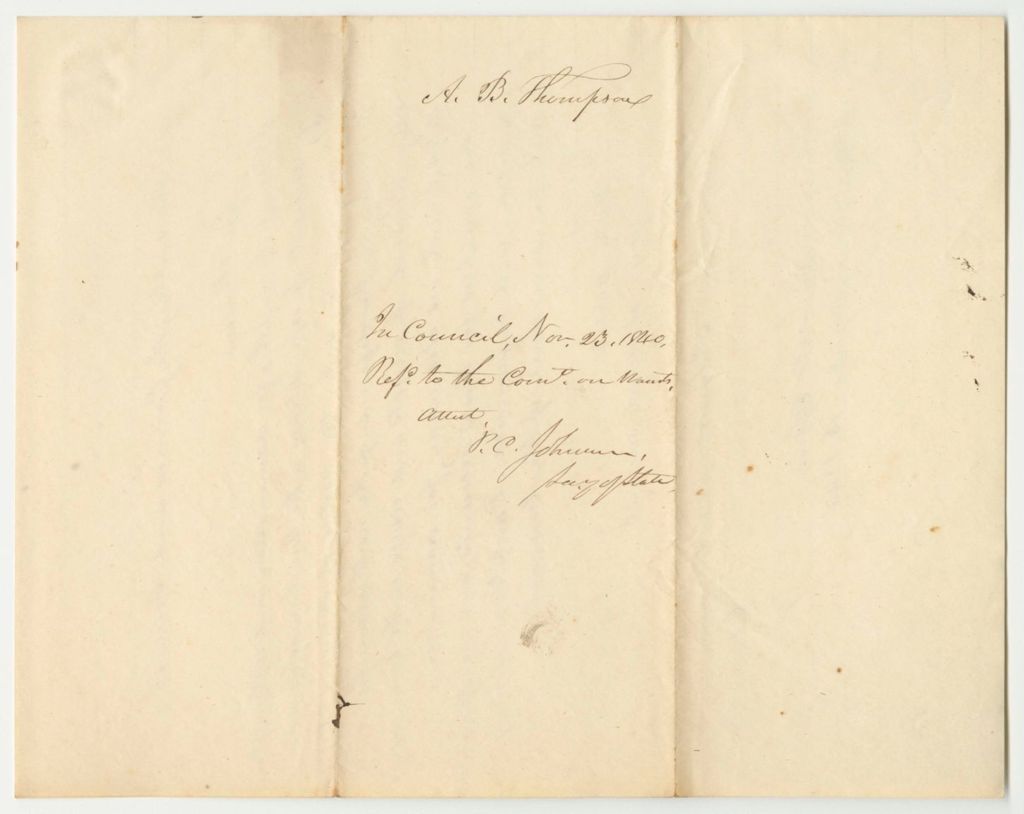 A. B. Thompson
In Council, Nov. 23. 1840,
Refd. to the Comee. on Warrts.
Attest,
P. C. Johnson,
Secy of State.